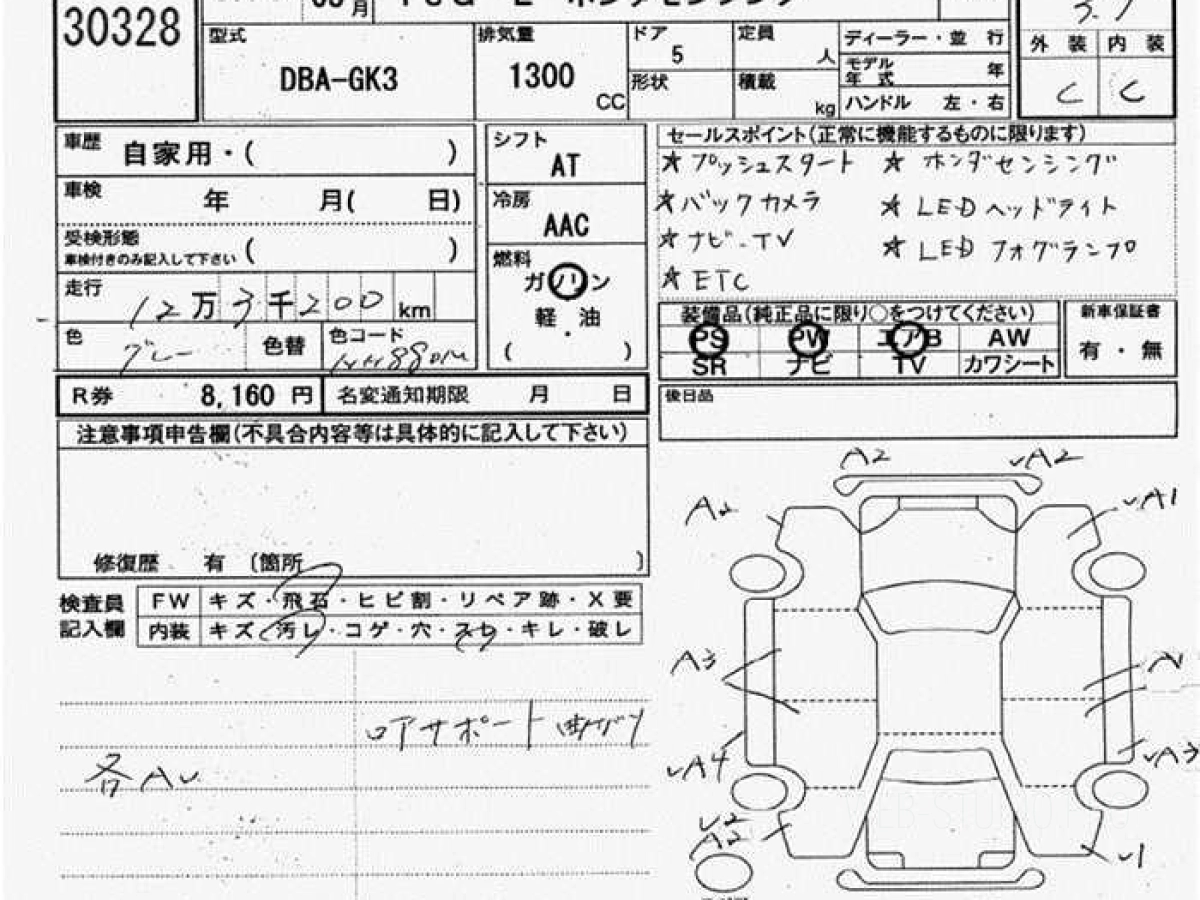 30328
月
型式 DBA-GK3
排気量 1300 CC
ドア 5
形状
定員 人
積載 kg
ディーラー・並 行
モデル年式 年
ハンドル 左・右
外 装 内 装
C C
車歴 自家用・( )
車検 年 月( 日)
受検形態 ( )
車検付きのみ記入して下さい
走行 12万3千200 km
色 グレー 色替 色コード
シフト AT
冷房 AAC
燃料
ガソリン
軽・油
( )
セールスポイント(正常に機能するものに限ります)
★プッシュスタート ★ ホンダセンシング
★バックカメラ ★ LEDヘッドライト
★ナビ-TV ★ LED フォグランプ
★ETC
装備品(純正品に限り○をつけてください)
PS PW エアB AW
SR ナビ TV カワシート
新車保証書
有・無
R券 8,160 円 名変通知期限 月 日
後日品
注意事項申告欄(不具合内容等は具体的に記入して下さい)
修復歴 有 〔箇所 〕
検査員記入欄
FW キズ・飛石・ヒビ割・リペア跡・X要
内装 キズ・汚レ・コゲ・穴・スレ・キレ・破レ
ロアサポート曲サビ
各AU
A2 UA2
A2 UA1
A3
UA4 UA3
U2
A2
U1